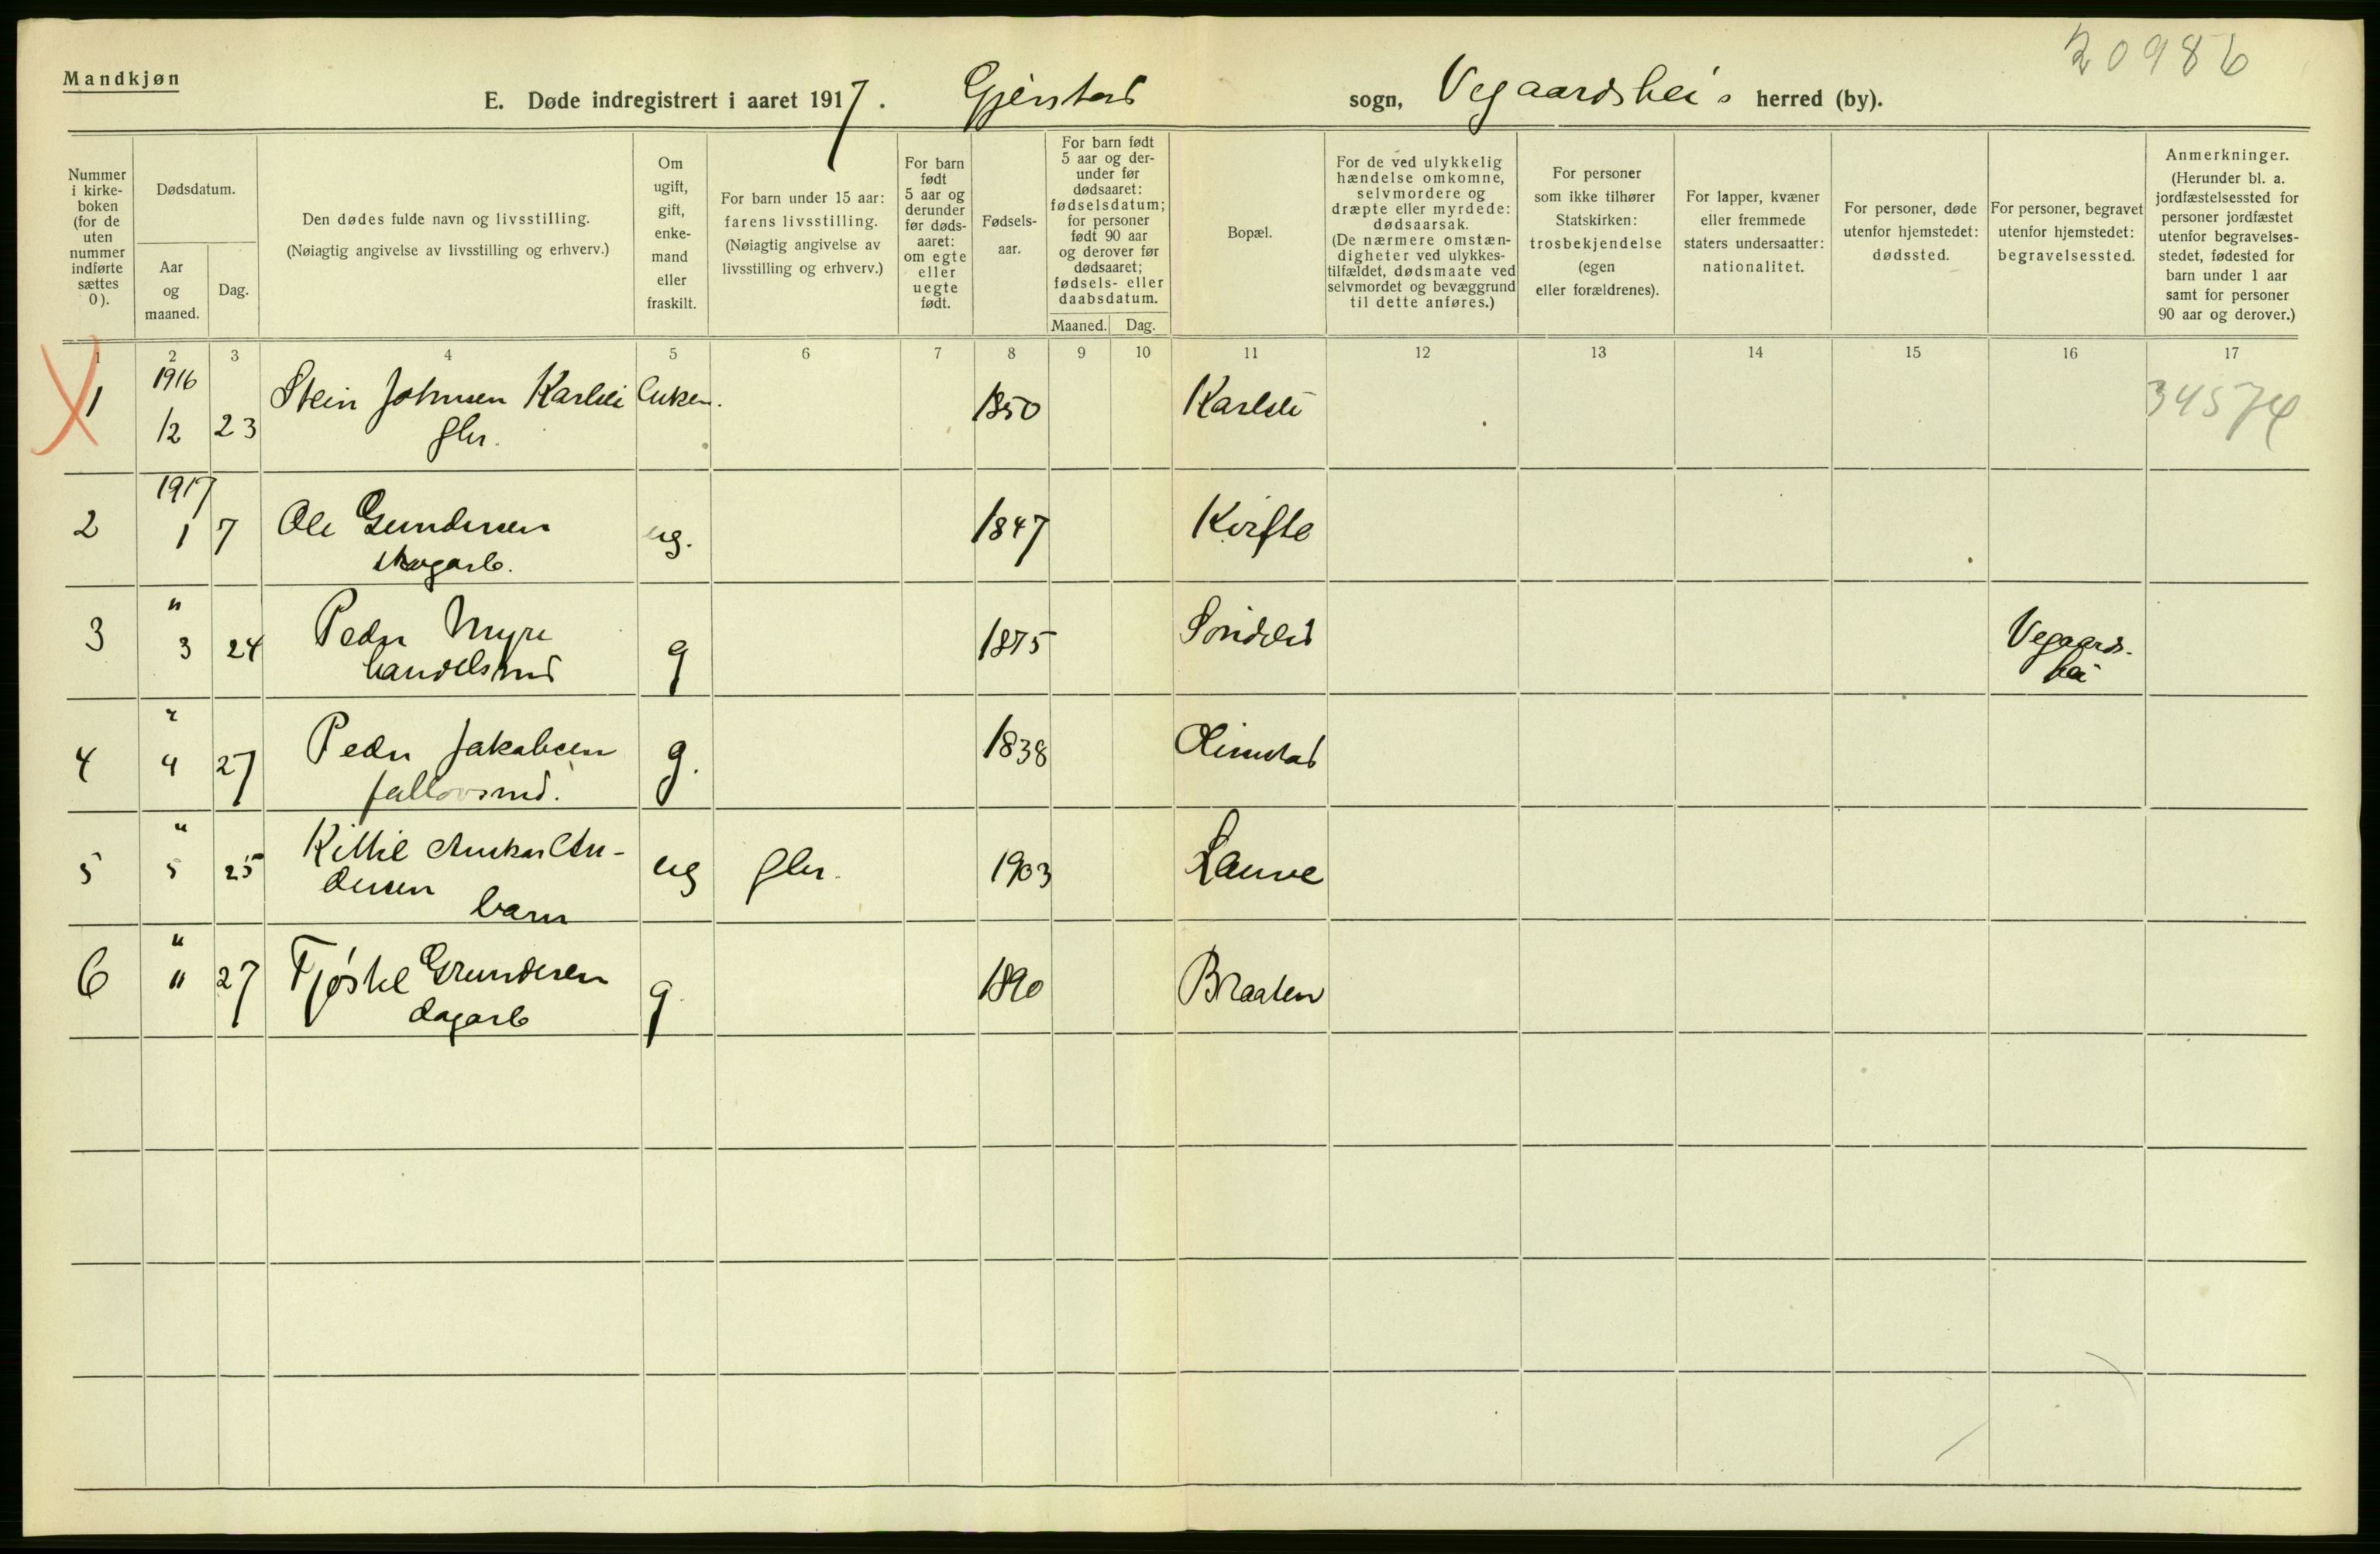 20986
Mandkjøn
E. Døde indregistrert i aaret 1917. Gjerstad sogn, Vegaardshei's herred (by).
Nummer i kirke- boken (for de uten nummer indførte sættes 0).
Dødsdatum.
Aar og maaned.
Dag.
Den dødes fulde navn og livsstilling.
(Nøiagtig angivelse av livsstilling og erhverv.)
Om ugift, gift, enke- mand eller fraskilt.
For barn under 15 aar: farens livsstilling. (Nøiagtig angivelse av livsstilling og erhverv.)
For barn født 5 aar og derunder før døds- aaret: om egte eller uegte født.
Fødsels- aar.
For barn født 5 aar og der- under før dødsaaret: fødselsdatum; for personer født 90 aar og derover før dødsaaret; fødsels- eller daabsdatum.
Maaned. Dag.
Bopæl.
For de ved ulykkelig hændelse omkomne, selvmordere og dræpte eller myrdede: dødsaarsak. (De nærmere omstæn- digheter ved ulykkes- tilfældet, dødsmaate ved selvmordet og bevæggrund til dette anføres.)
For personer som ikke tilhører Statskirken: trosbekjendelse (egen eller forældrenes).
For lapper, kvæner eller fremmede staters undersaatter: nationalitet.
For personer, døde utenfor hjemstedet: dødssted.
For personer, begravet utenfor hjemstedet: begravelsessted.
Anmerkninger. (Herunder bl. a. jordfæstelsessted for personer jordfæstet utenfor begravelses- stedet, fødested for barn under 1 aar samt for personer 90 aar og derover.)
1 2 3 4 5 6 7 8 9 10 11 12 13 14 15 16 17
1 1916 12 23 Stein Johnsen Karlei 1850 Karlsli 34574
gbr.
2 1917 1 7 Ole Gundersen ug. 1847 Kvifte
skogarb.
3 " 3 24 Peder Myre g 1875 Søndeled Vegaards-
handelsmd hei
4 " 4 27 Peder Jakobsen g. 1838
5 " 5 25 Kittil An- ug gbr. 1903 Lauve
dersen
barn
6 " " 27 Tjøstel Gundersen g 1890 Braaten
dagarb